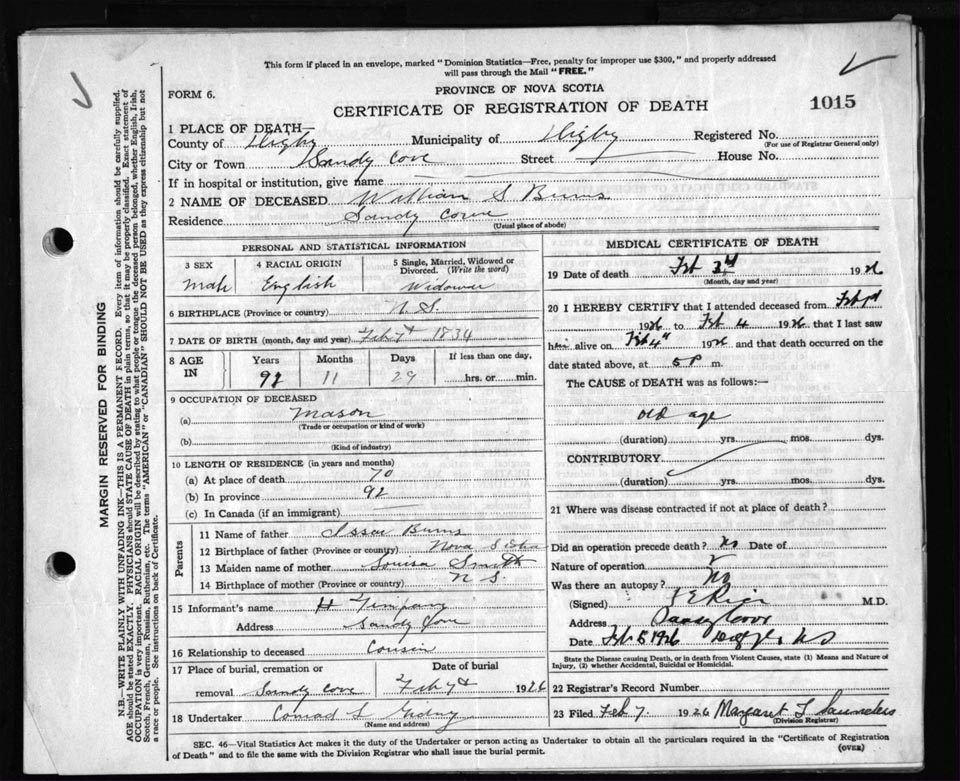 This form if placed in an envelope, marked "Dominion Statistics—Free, penalty for improper use $300," and properly addressed
will pass through the Mail "FREE."
FORM 6.
PROVINCE OF NOVA SCOTIA
CERTIFICATE OF REGISTRATION OF DEATH
1015
1 PLACE OF DEATH—
County of Digby Municipality of Digby Registered No.
(For use of Registrar General only)
City or Town Sandy Cove Street House No.
If in hospital or institution, give name
2 NAME OF DECEASED William S Burns
Residence Sandy Cove
(Usual place of abode)
PERSONAL AND STATISTICAL INFORMATION
3 SEX
male
4 RACIAL ORIGIN
English
5 Single, Married, Widowed or
Divorced. (Write the word)
Widower
6 BIRTHPLACE (Province or country) N.S.
7 DATE OF BIRTH (month, day and year) Feby 7th 1834
8 AGE
IN
Years Months Days If less than one day,
92 11 29 hrs. or min.
9 OCCUPATION OF DECEASED
(a) Mason
(Trade or occupation or kind of work)
(b)
(Kind of industry)
10 LENGTH OF RESIDENCE (in years and months)
(a) At place of death 70
(b) In province 92
(c) In Canada (if an immigrant)
Parents
11 Name of father Burns
12 Birthplace of father (Province or country) Nova Scotia
13 Maiden name of mother Louisa Smith
14 Birthplace of mother (Province or country) N S.
15 Informant's name H Timpany
Address Sandy Cove
16 Relationship to deceased Cousin
17 Place of burial, cremation or
removal Sandy Cove
Date of burial
Feby 7th 1926
18 Undertaker Conrad L Gidny
(Name and address)
MEDICAL CERTIFICATE OF DEATH
19 Date of death Feb 3d 1926
(Month, day and year)
20 I HEREBY CERTIFY that I attended deceased from Feb
1926 to Feb 4 1926 that I last saw
h alive on Feb 4" 1926 and that death occurred on the
date stated above, at 5 P m.
The CAUSE of DEATH was as follows:—
old age
(duration) yrs. mos. dys.
CONTRIBUTORY
(duration) yrs. mos. dys.
21 Where was disease contracted if not at place of death?
Did an operation precede death? No Date of
Nature of operation
Was there an autopsy? No
(Signed) F E Rice M.D.
Address Sandy Cove
Date Feb 5 1926 Digby Co NS
State the Disease causing Death, or in death from Violent Causes, state (1) Means and Nature of
Injury, (2) whether Accidental, Suicidal or Homicidal.
22 Registrar's Record Number
23 Filed Feb 7. 1926 Margaret L Saunders
(Division Registrar)
SEC. 46—Vital Statistics Act makes it the duty of the Undertaker or person acting as Undertaker to obtain all the particulars required in the "Certificate of Registration
of Death" and to file the same with the Division Registrar who shall issue the burial permit. (OVER)
MARGIN RESERVED FOR BINDING
N.B.—WRITE PLAINLY WITH UNFADING INK—THIS IS A PERMANENT RECORD. Every item of information should be carefully supplied.
AGE should be stated EXACTLY. PHYSICIANS should STATE CAUSE OF DEATH in plain terms, so that it may be properly classified. Exact statement of
OCCUPATION is very important. RACIAL ORIGIN will be described by stating to what people or tongue the deceased person belonged, whether English, Irish,
Scotch, French, German, Russian, Ruthenian, etc. The terms "AMERICAN" or "CANADIAN" SHOULD NOT BE USED as they express citizenship but not
a race or people. See instructions on back of Certificate.